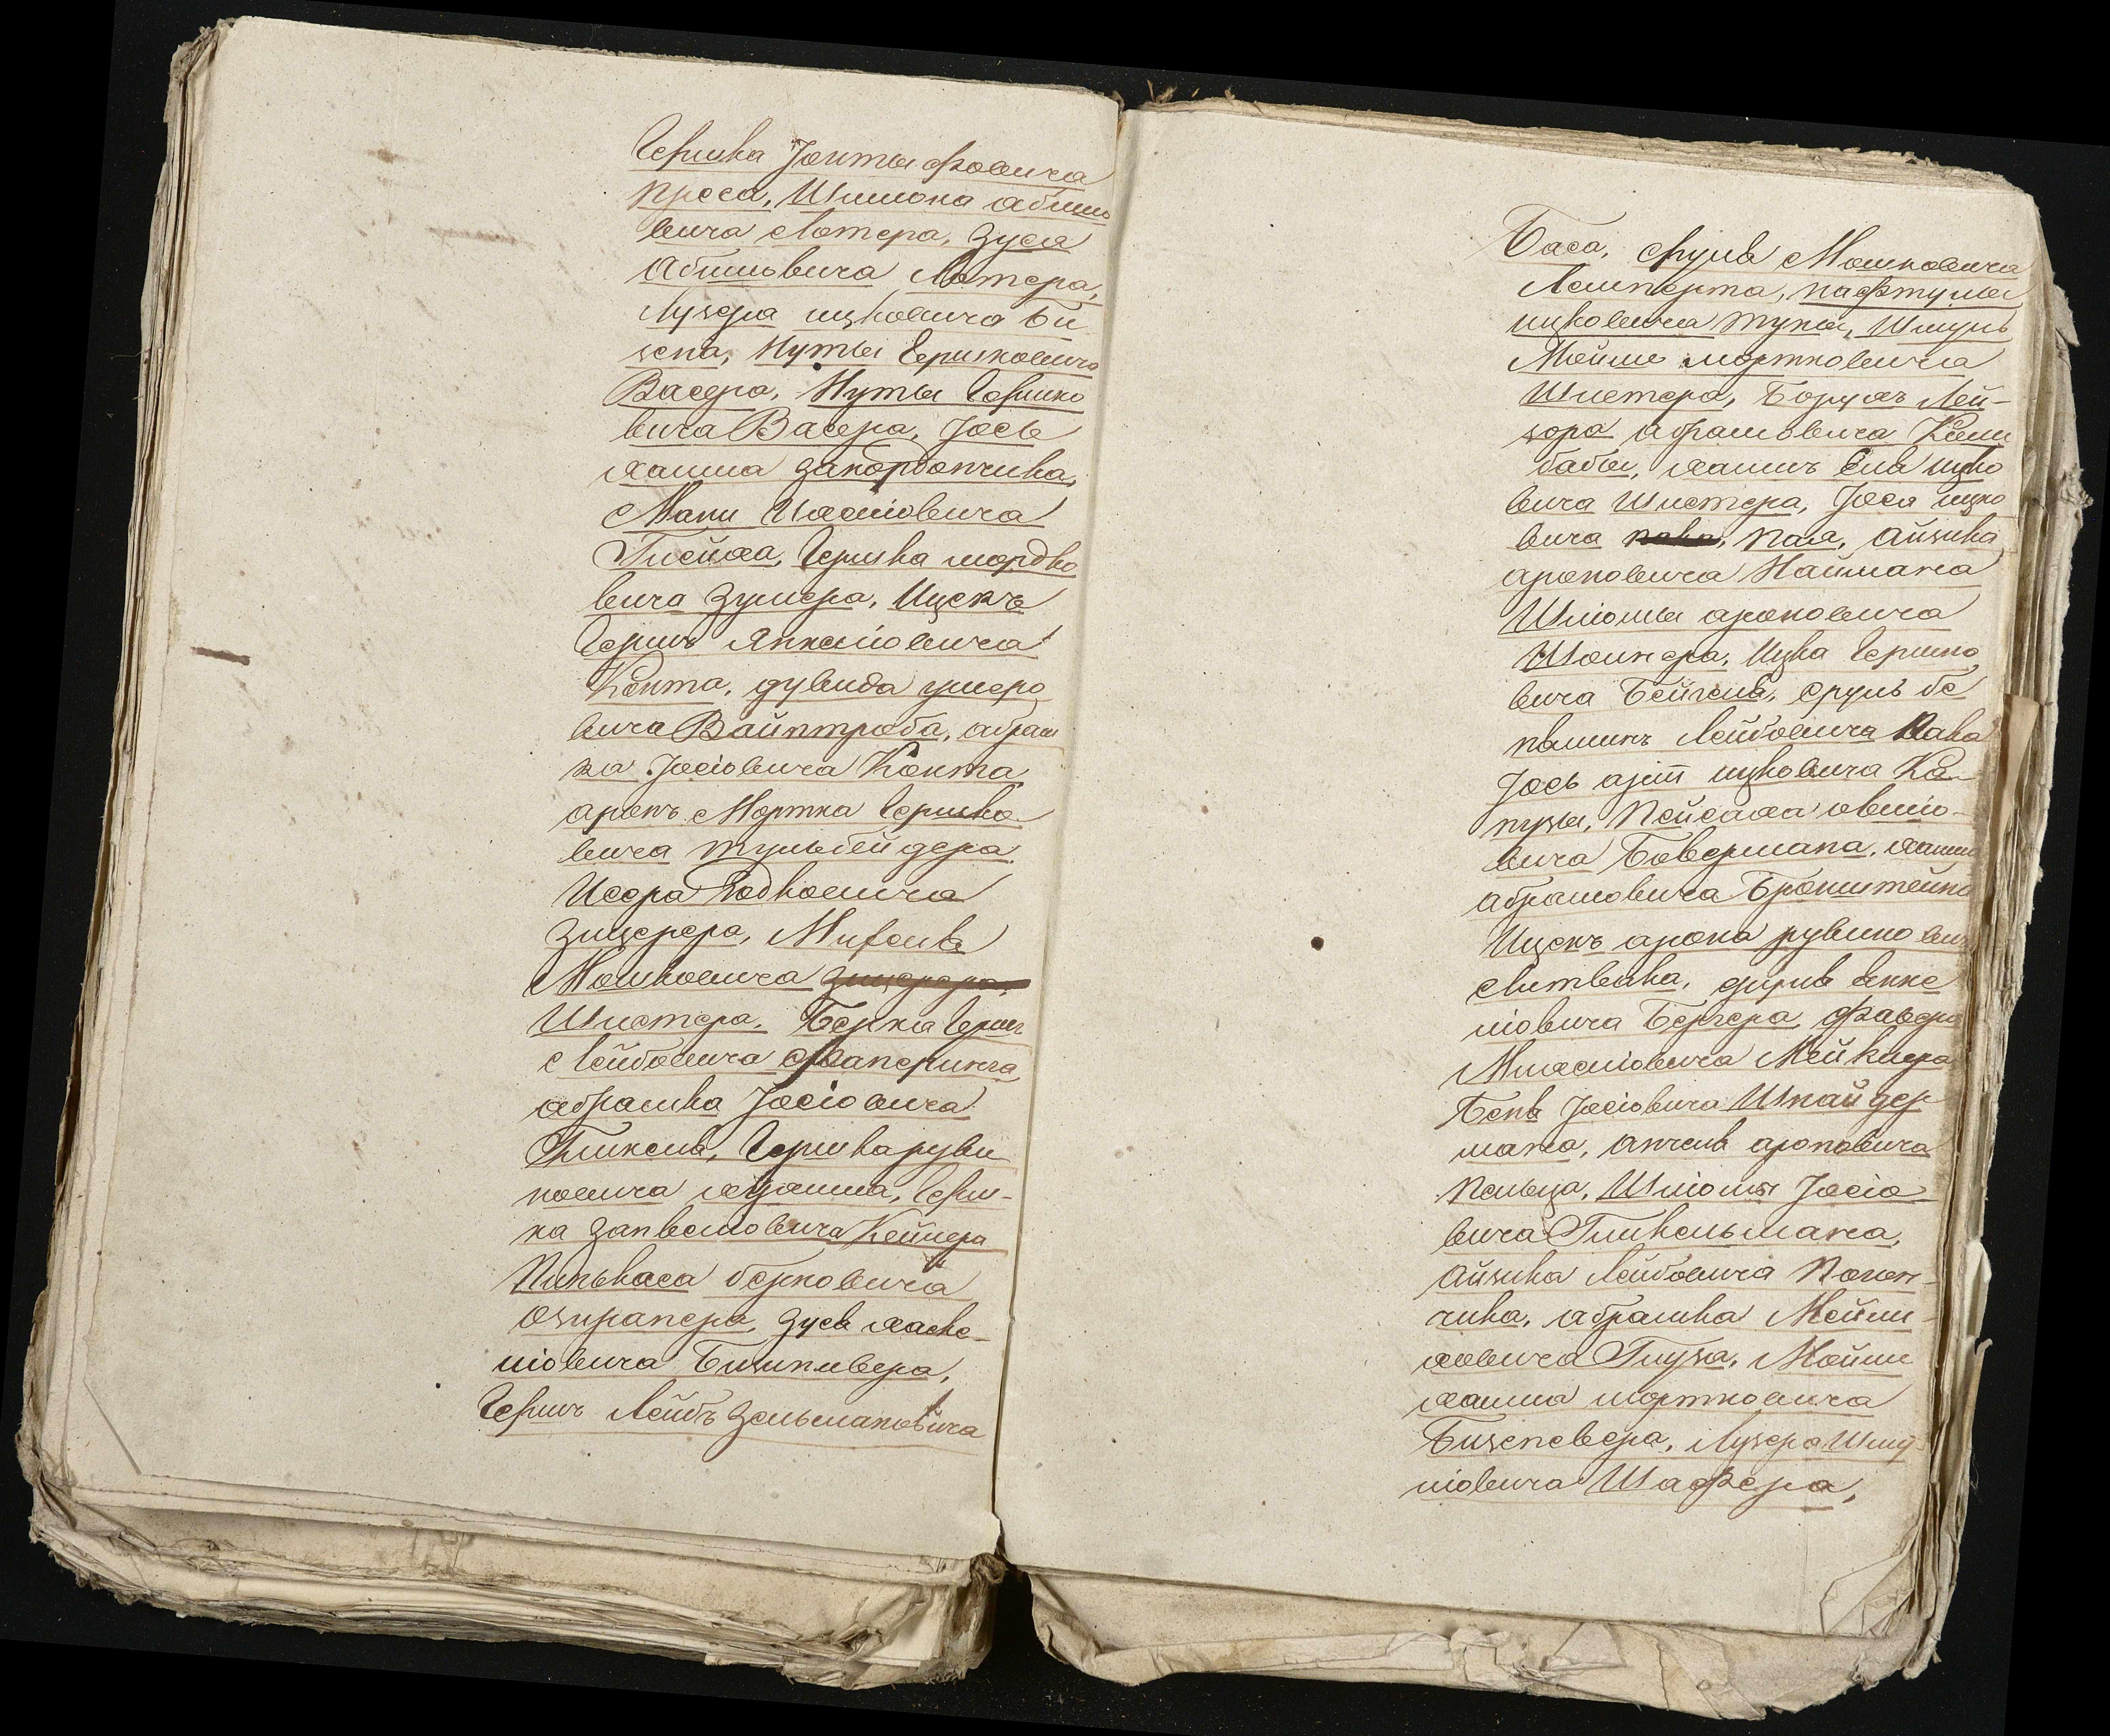 Гершка Іонтыфовича
Преса, Шимона абише
вича Лотера, Зуся
Абишьвича Лотера,
Лузера ицковича Би
зена, Нуты Гершковича
Васера, Нуты Гершко
вича Васера, Іось
хаима закордончика,
Мани Иоселіовича
Глейха, Гершка мордко
вича Зумера, Ицекъ
Гершъ Янкеліовича
Конта, дувида умеро
вича Вайнтроба, абрам
ка Іосіовича Конта
аронъ Мортка Гершко
вича тульбейдера
Исера Родковича
Зицерера, Михеля
Мошковича
Шистера, Берка Герш
Лейбовича Фаперинга,
абрамка Іосіовича
Гликеля, Гершка руви
новича хаима, Герш-
ка Занвеловича Кейнера
Пинькаса берковича
Озирапера, Зуся хаске-
ліовича Бизинливера,
Гершъ Лейбъ Зельмановича
Баса, Сруля Мошковича
Лемперта, нафтулы
ицковича тукы, Шмуль
Мойше мортковича
Шистера, Борухъ Лей-
зора абрамовича Ками
бабы, хаимъ Еля ицко
вича Шистера, Іося ицко
вича Пая, айзика
ароновича Наймана
Шліомы ароновича
Шоинера, Ицка Гершко
вича Бейгеля, сруль бе
няминъ Лейбовича Пака
Іось ицковича Ка-
пузы, Пейсаха овшіо-
вича Бовермана, хаима
абрамовича Бронштейна
Ицекъ арона рувино вич
Литвака, сруля янке
ліовича Бергера, Фавера
Михеліовича Мейклера
Беня Іосіовича Шнайдер
мана, анчеля ароновича
Пельца, Шліомы Іосіо
вича Глинкельмана,
айзика Лейбовича Полон-
чика, абрамка Мейли-
ховича Глуза, Мойше
хаима мортковича
Бизеневера, Лузера Шму-
ліовича Шафера,